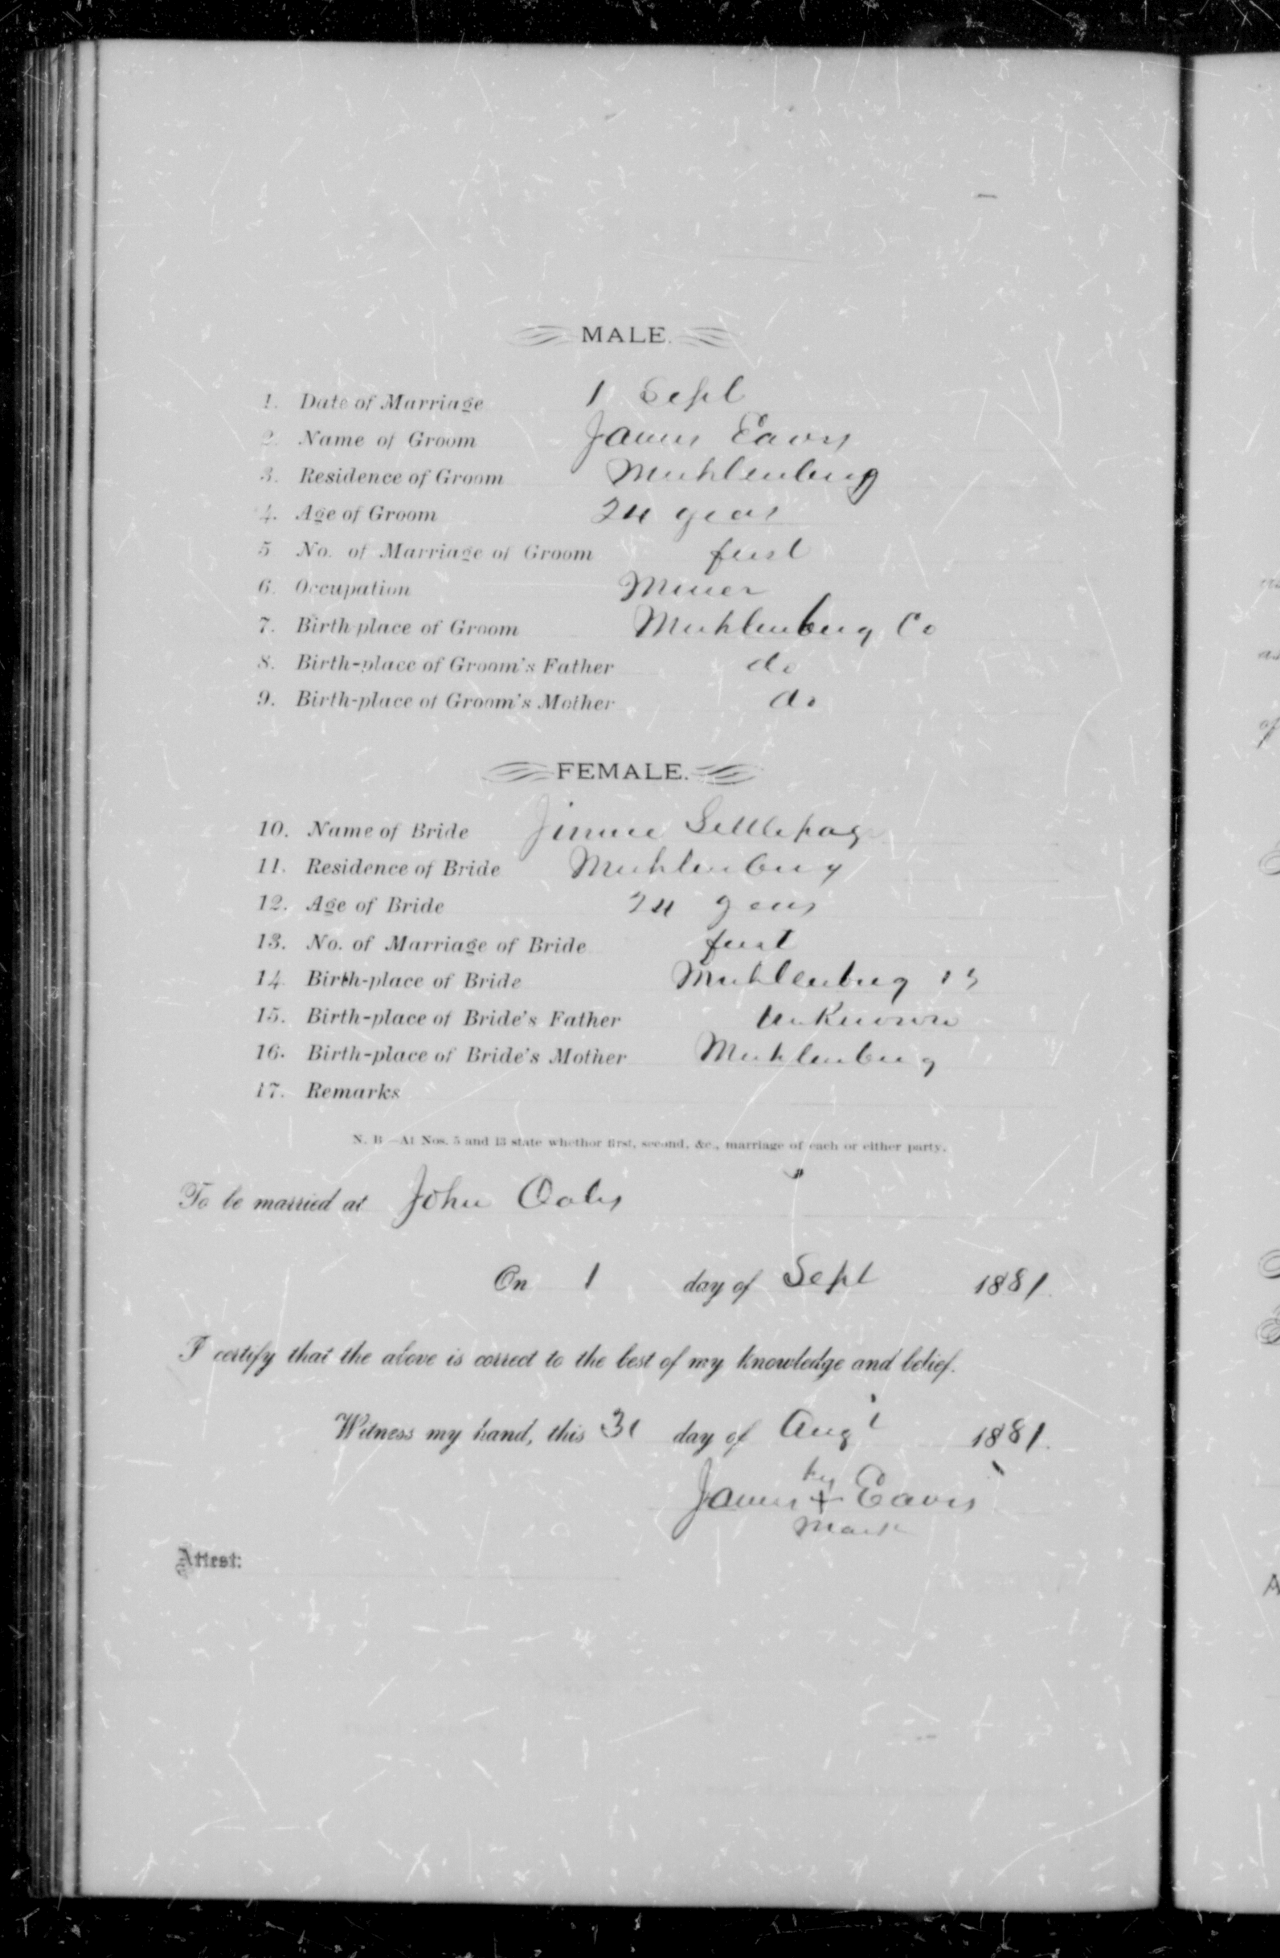 MALE.
1. Date of Marriage 1 Sept
2. Name of Groom James Eaves
3. Residence of Groom Muhlenburg
4. Age of Groom 24 years
5 No. of Marriage of Groom first
6. Occupation Miner
7. Birth-place of Groom Muhlenburg Co
8. Birth-place of Groom's Father do
9. Birth-place of Groom's Mother do
FEMALE.
10. Name of Bride Jinnie
11. Residence of Bride Muhlenburg
12. Age of Bride 24 years
13. No. of Marriage of Bride first
14 Birth-place of Bride Muhlenburg
15. Birth-place of Bride's Father Unknown
16. Birth-place of Bride's Mother Muhlenburg
17. Remarks
N. B—At Nos. 5 and 13 state whethor first, second, &c., marriage of each or either party.
To be married at John Oates
On 1 day of Sept 1881.
I certify that the above is correct to the best of my knowledge and belief.
Witness my hand, this 31 day of Augt 1881.
his
James + Eaves
Mark
Attest: